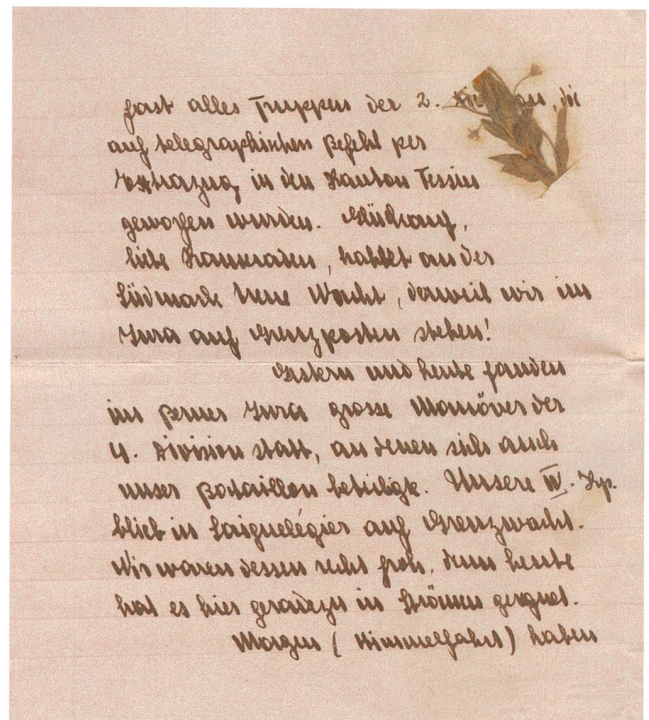 fast alles Truppen der 2. Division, die
auf telegraphischen Befehl per
Extrazug in den Kanton Tessin
geworfen wurden. Glückauf,
liebe Kameraden, haltet an der
Südmark treue Wacht, derweil wir im
Jura auf Grenzposten stehen!
Gestern und heute fanden
im Berner Jura grosse Manöver der
4. Division statt, an denen sich auch
unser Bataillon beteiligte. Unsere IV. Kp.
blieb in Saignelégier auf Grenzwacht.
Wir waren dessen recht froh, denn heute
hat es hier geradezu in Strömen geregnet.
Morgen (Himmelfahrt) haben